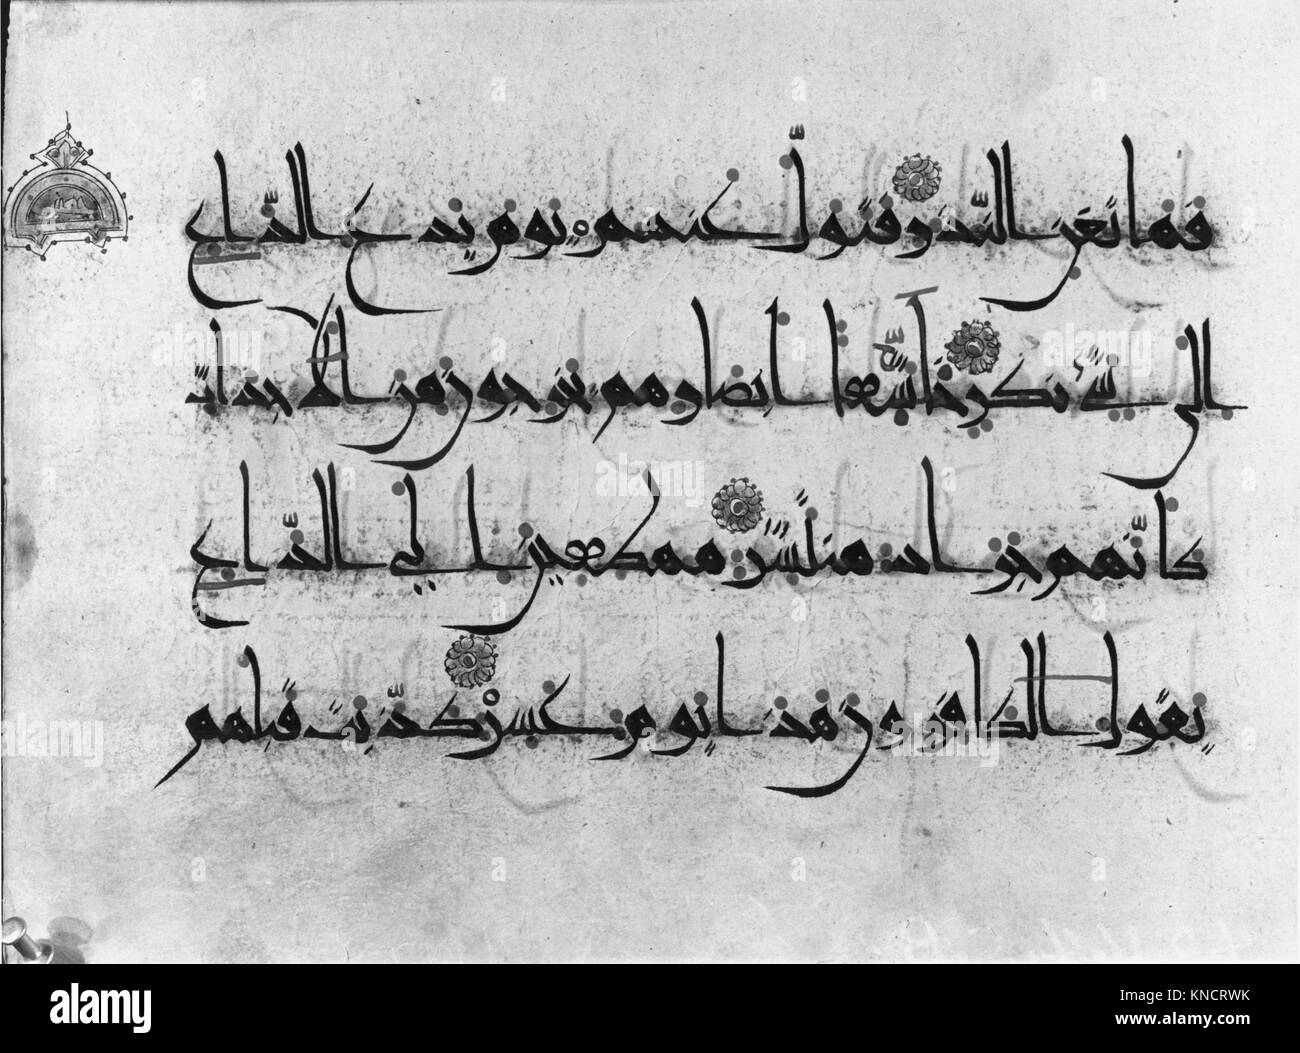 فما تغن النذر فتول عنهم يوم يدع الداع
الى شيء نكر خشعا ابصارهم يخرجون من الاجداث
كانهم جراد منتشر مهطعين الى الداع
يقول الكافرون هذا يوم عسر كذبت قبلهم
alamy
Image ID: KNCRWK
www.alamy.com